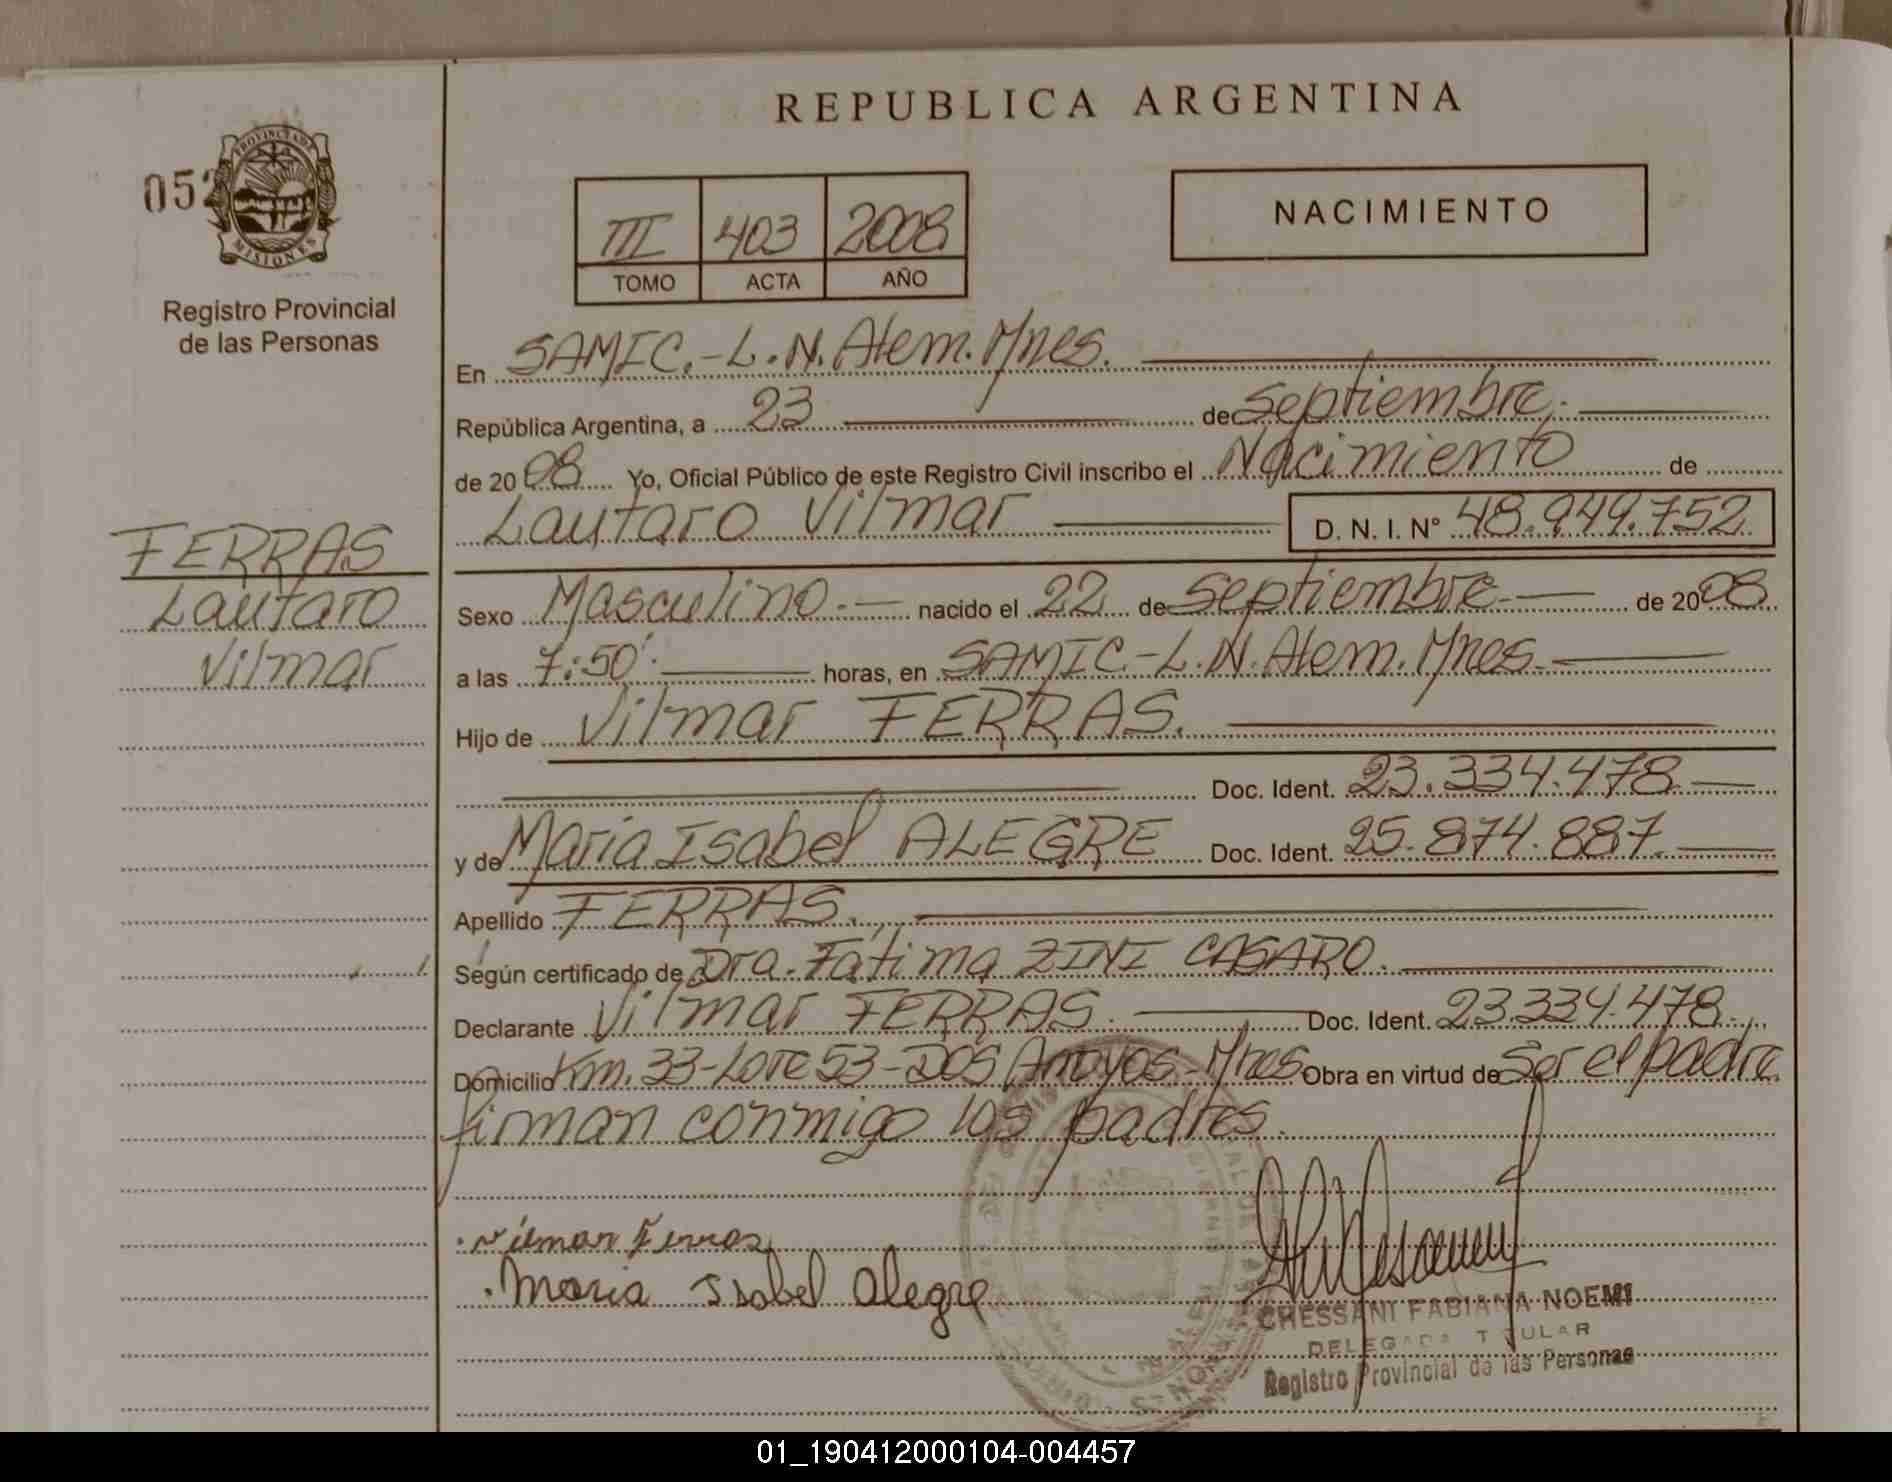 REPUBLICA ARGENTINA
PROVINCIA DE
MISIONES
Registro Provincial
de las Personas
III 403 2008
TOMO ACTA AÑO
NACIMIENTO
En SAMIC.-L.N.Alem.Mnes.
República Argentina, a 23 de septiembre.
de 2008 Yo, Oficial Público de este Registro Civil inscribo el Nacimiento de
Lautaro Vilmar D. N. I. N° 48.949.752
FERRAS
Lautaro
Vilmar
Sexo Masculino.- nacido el 22 de septiembre- de 2008
a las 7:50'. horas, en SAMIC.-L.N.Alem.Mnes.-
Hijo de Vilmar FERRAS.
Doc. Ident. 23.334.478
y de Maria Isabel ALEGRE Doc. Ident. 25.874.887.
Apellido FERRAS.
Según certificado de Dra. Fátima ZINI CASARO.
Declarante Vilmar FERRAS. Doc. Ident. 23.334.478.
Domicilio Km. 33-Lote 53-DOS Arroyos-Mnes. Obra en virtud de Ser el padre
firman conmigo los padres.
Vilmar Ferras
Maria Isabel Alegre
CHESSANI FABIANA NOEMI
DELEGADA TITULAR
Registro Provincial de las Personas
01_190412000104-004457